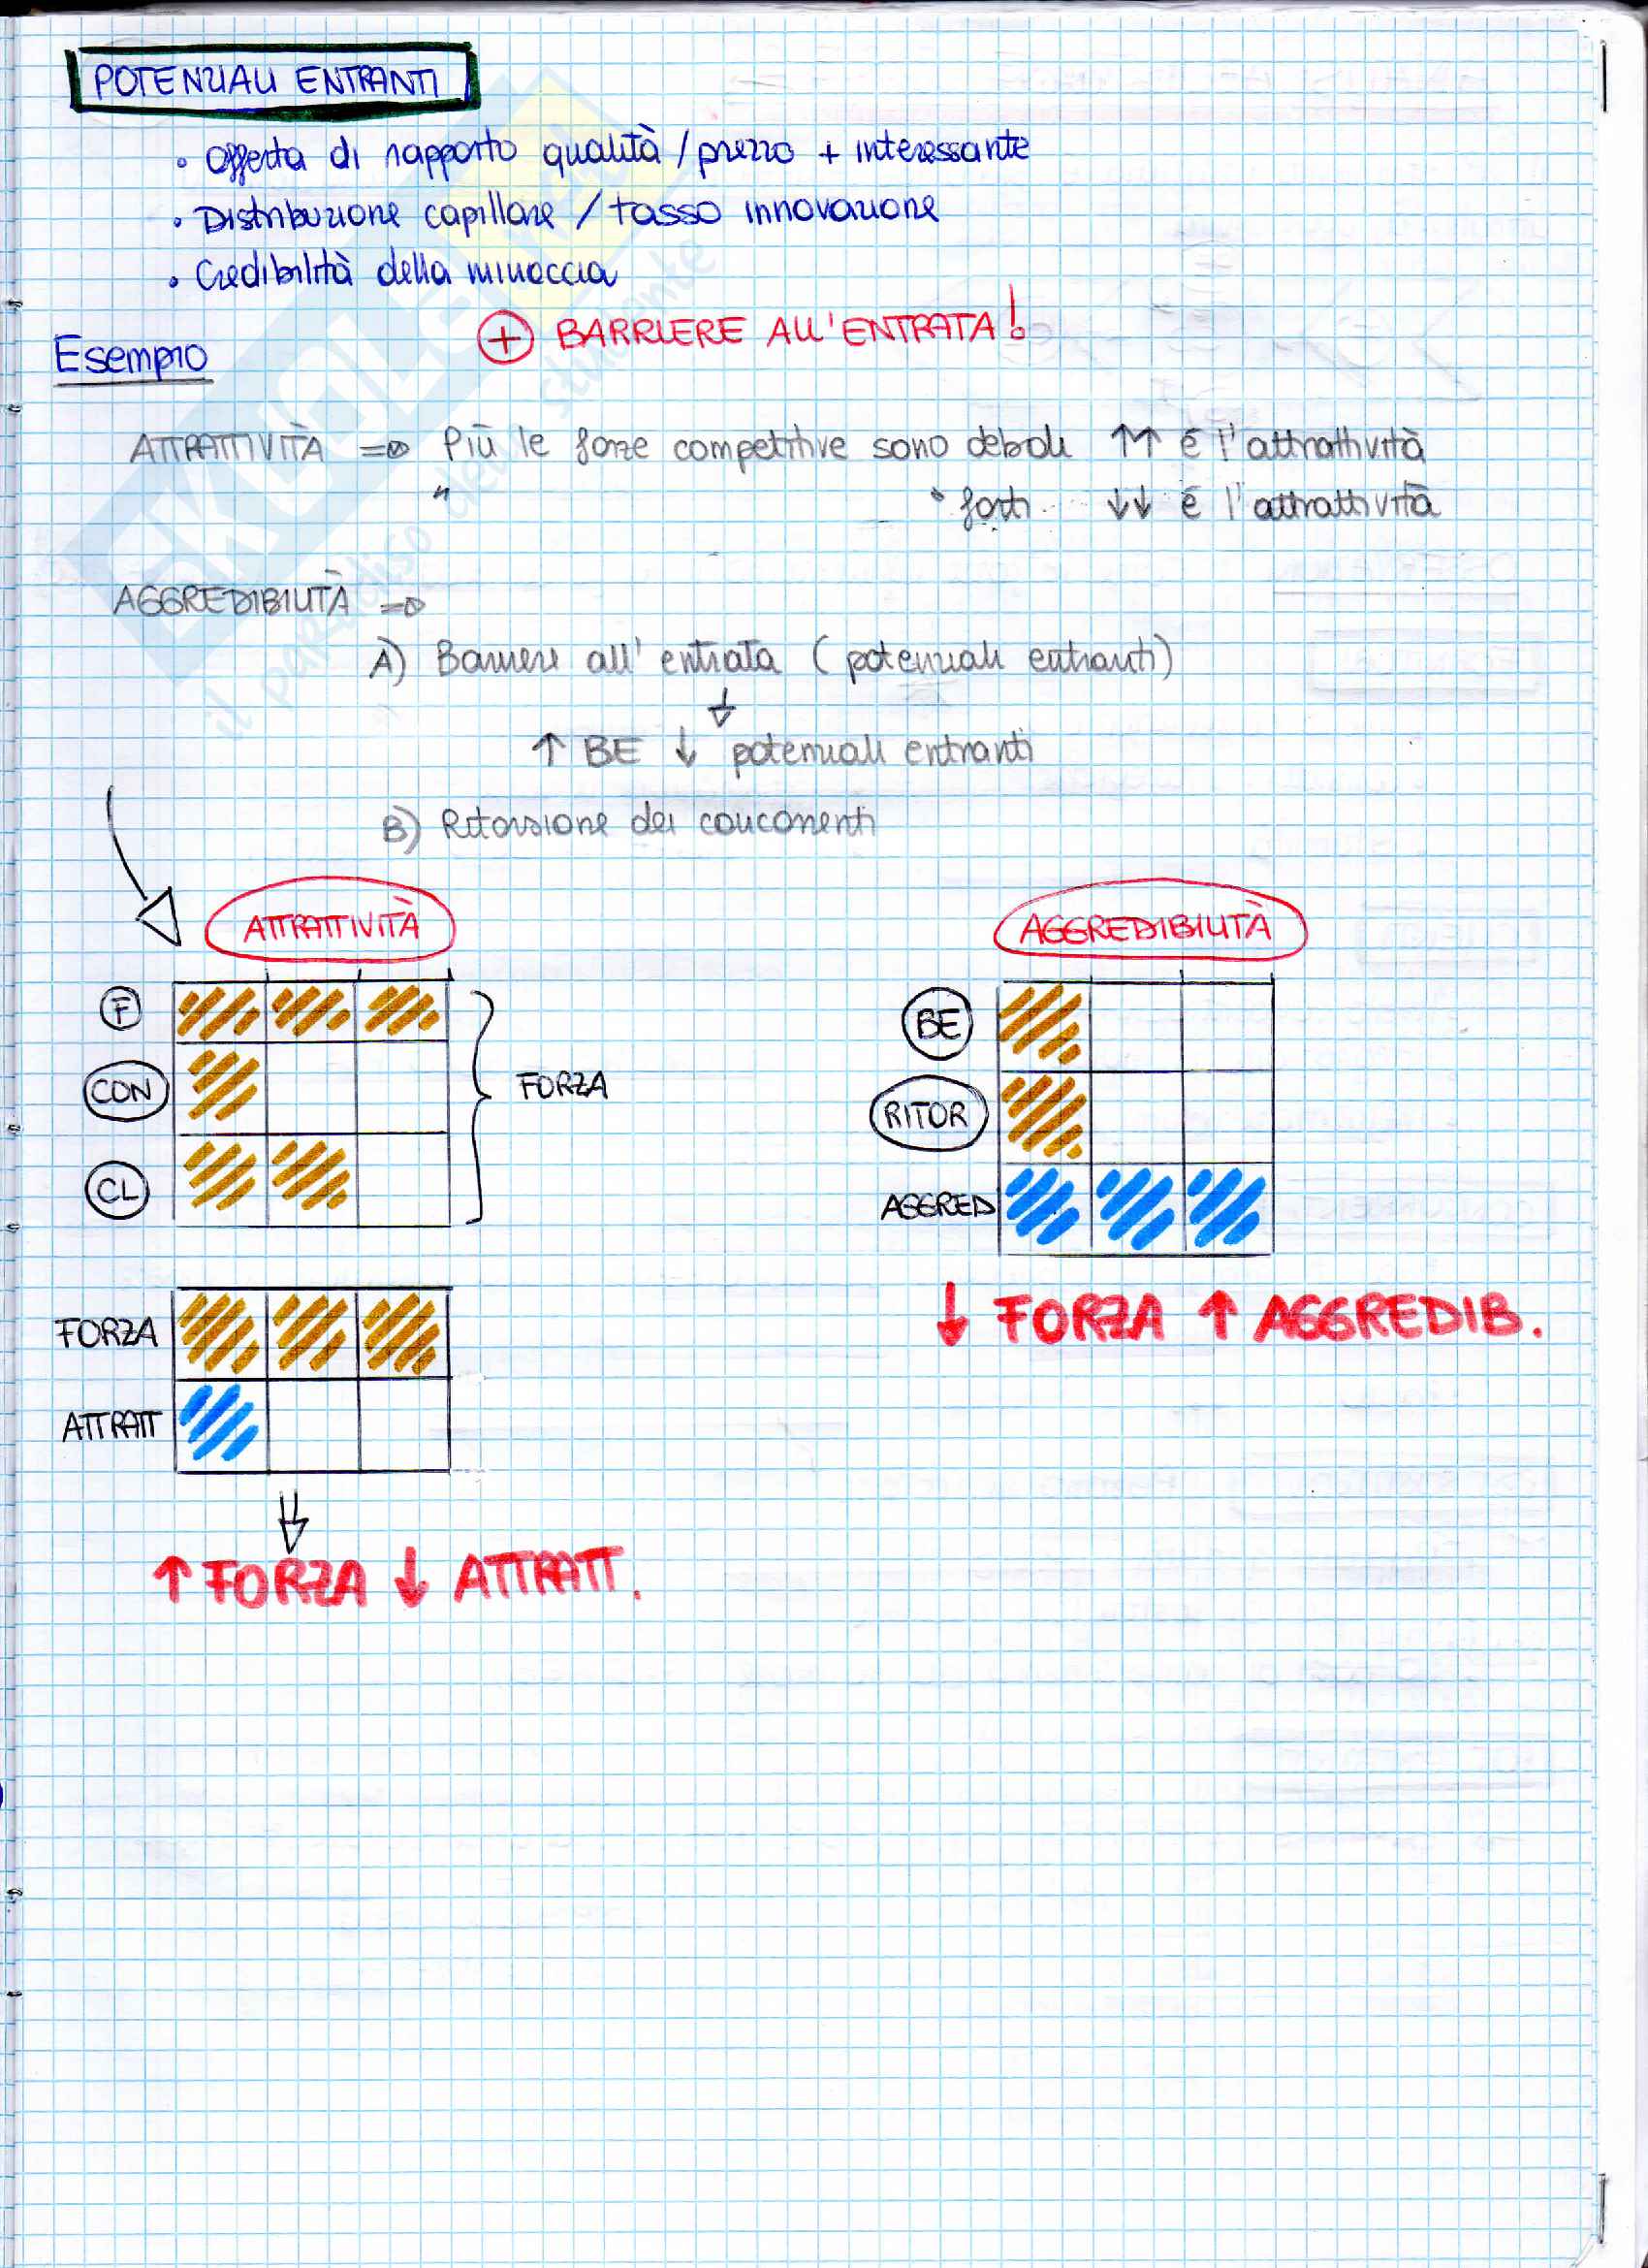 POTENZIALI ENTRANTI
• Offerta di rapporto qualità / prezzo + interessante
• Distribuzione capillare / tasso innovazione
• Credibilità della minaccia
+ BARRIERE ALL'ENTRATA!
Esempio
ATTRATTIVITÀ => Più le forze competitive sono deboli ↑↑ é l'attrattività
" " forti ↓↓ é l'attrattività
AGGREDIBILITÀ =>
A) Barriere all'entrata (potenziali entranti)
↓
↑ BE ↓ potenziali entranti
B) Ritorsione dei concorrenti
ATTRATTIVITÀ
F
CON
CL
FORZA
FORZA
ATTRATT
↑ FORZA ↓ ATTRATT.
AGGREDIBILITÀ
BE
RITOR
AGGRED
↓ FORZA ↑ AGGREDIB.
SKUOLA.net
il paradiso dello studente